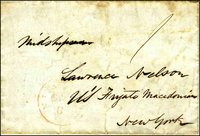 Midshipman
Lawrence Neelson
US Frigate Macedonian
New York